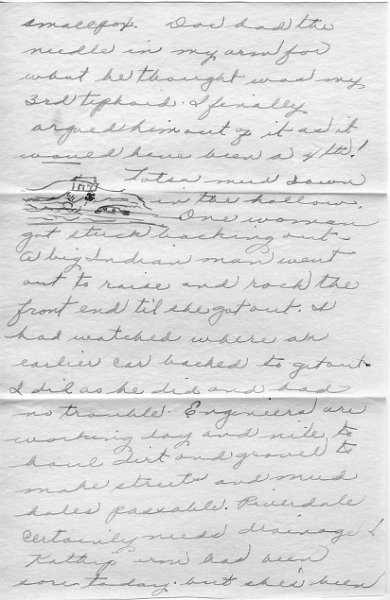 smallpox. Doc had the
needle in my arm for
what he thought was my
3rd typhoid. I finally
argued him out of it as it
would have been a 4th!
Lotsa mud down
in the hollow.
One woman
got stuck backing out.
A big Indian man went
out to raise and rock the
front end til she got out. I
had watched where an
earlier car backed to get out.
I did as he did and had
no trouble. Engineers are
working day and nite to
haul dirt and gravel to
make streets and mud
holes passable. Riverdale
certainly needs drainage!
Kathy's arm had been
sore today but she's been